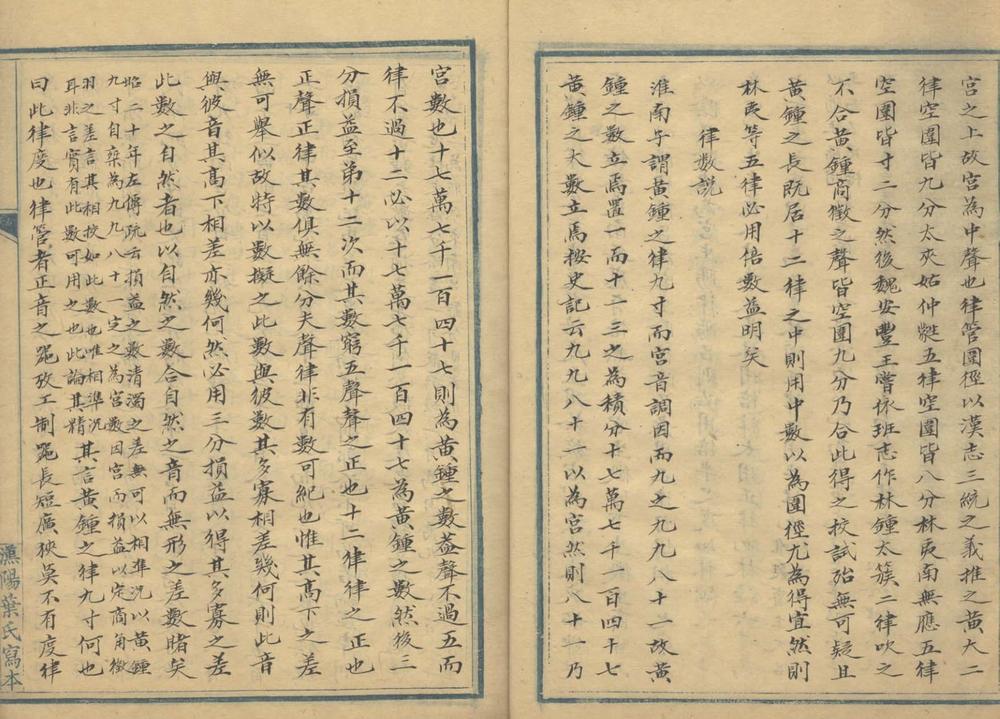 宮之上故宮為中聲也律管圍徑以漢志三統之義推之黃大二
律空圍皆九分太夾姑仲蕤五律空圍皆八分林夷南無應五律
空圍皆寸二分然後魏安豐王嘗依班志作林鍾太簇二律吹之
不合黃鍾商徵之聲皆空圍九分乃合此得之校試殆無可疑且
黃鍾之長既居十二律之中則用中數以為圍徑尢為得宜然則
林夷等五律必用倍數益明矣
律數說
淮南子謂黃鍾之律九寸而宮音調因而九之九九八十一故黃
鍾之數立焉置一而十一三之為積分十七萬七千一百四十七
黃鍾之大數立焉按史記云九九八十一以為宮然則八十一乃
宮數也十七萬七千一百四十七則為黃鍾之數蓋聲不過五而
律不過十二必以十七萬七千一百四十七為黃鍾之數然後三
分損益至弟十二次而其數窮五聲聲之正也十二律律之正也
正聲正律其數俱無餘分夫聲律非有數可紀也惟其高下之差
無可舉似故特以數擬之此數與彼數其多寡相差幾何則此音
與彼音其高下相差亦幾何然必用三分損益以得其多寡之差
此數之自然者也以自然之數合自然之音而無形之差數睹矣
昭二十年左傳疏云損益之數清濁之差無可以相準況以黃鍾
九寸自乘為九九八十一定之為宮數因宮而損益以定商角徵
羽之差言其相校如此數也唯相準況
耳非言實有此數可用之也此論其精
其言黃鍾之律九寸何也
曰此律度也律管者正音之器攷工制器長短廣狹莫不有度律
漁陽葉氏寫本